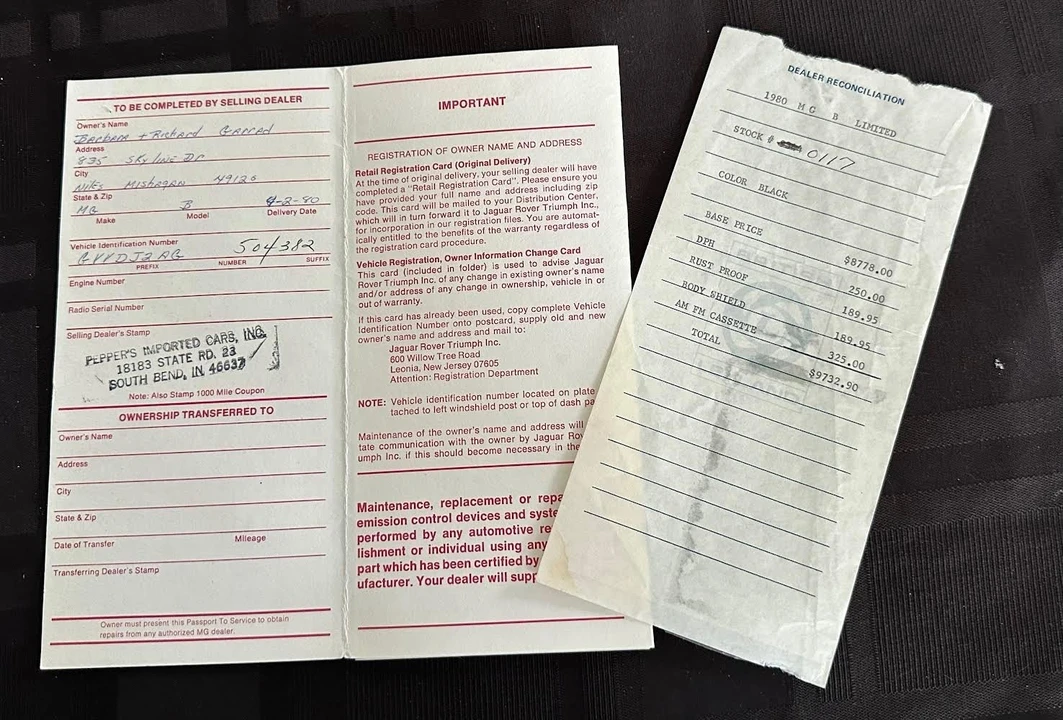 TO BE COMPLETED BY SELLING DEALER
Owner's Name
Barbara + Richard
Address
835 SKYLINE Dr
City
Niles Mishagan 49120
State & Zip
MG B 4-2-80
Make Model Delivery Date
Vehicle Identification Number
504382
PREFIX NUMBER SUFFIX
Engine Number
Radio Serial Number
Selling Dealer's Stamp
PEPPER'S IMPORTED CARS, INC.
18183 STATE RD. 23
SOUTH BEND, IN. 46637
Note: Also Stamp 1000 Mile Coupon
OWNERSHIP TRANSFERRED TO
Owner's Name
Address
City
State & Zip
Date of Transfer Mileage
Transferring Dealer's Stamp
Owner must present this Passport To Service to obtain
repairs from any authorized MG dealer.
IMPORTANT
REGISTRATION OF OWNER NAME AND ADDRESS
Retail Registration Card (Original Delivery)
At the time of original delivery, your selling dealer will have
completed a "Retail Registration Card". Please ensure you
have provided your full name and address including zip
code. This card will be mailed to your Distribution Center,
which will in turn forward it to Jaguar Rover Triumph Inc.,
for incorporation in our registration files. You are automat-
ically entitled to the benefits of the warranty regardless of
the registration card procedure.
Vehicle Registration, Owner Information Change Card
This card (included in folder) is used to advise Jaguar
Rover Triumph Inc. of any change in existing owner's name
and/or address of any change in ownership, vehicle in or
out of warranty.
If this card has already been used, copy complete Vehicle
Identification Number onto postcard, supply old and new
owner's name and address and mail to:
Jaguar Rover Triumph Inc.
600 Willow Tree Road
Leonia, New Jersey 07605
Attention: Registration Department
NOTE: Vehicle identification number located on plate
tached to left windshield post or top of dash pa
Maintenance of the owner's name and address will
tate communication with the owner by Jaguar Rov
umph Inc. if this should become necessary in the
Maintenance, replacement or repa
emission control devices and syste
performed by any automotive re
lishment or individual using any
part which has been certified by
ufacturer. Your dealer will supp
DEALER RECONCILIATION
1980 M G B LIMITED
STOCK # 0117
COLOR BLACK
BASE PRICE $8778.00
DPH 250.00
RUST PROOF 189.95
BODY SHIELD 189.95
AM FM CASSETTE 325.00
TOTAL $9732.90